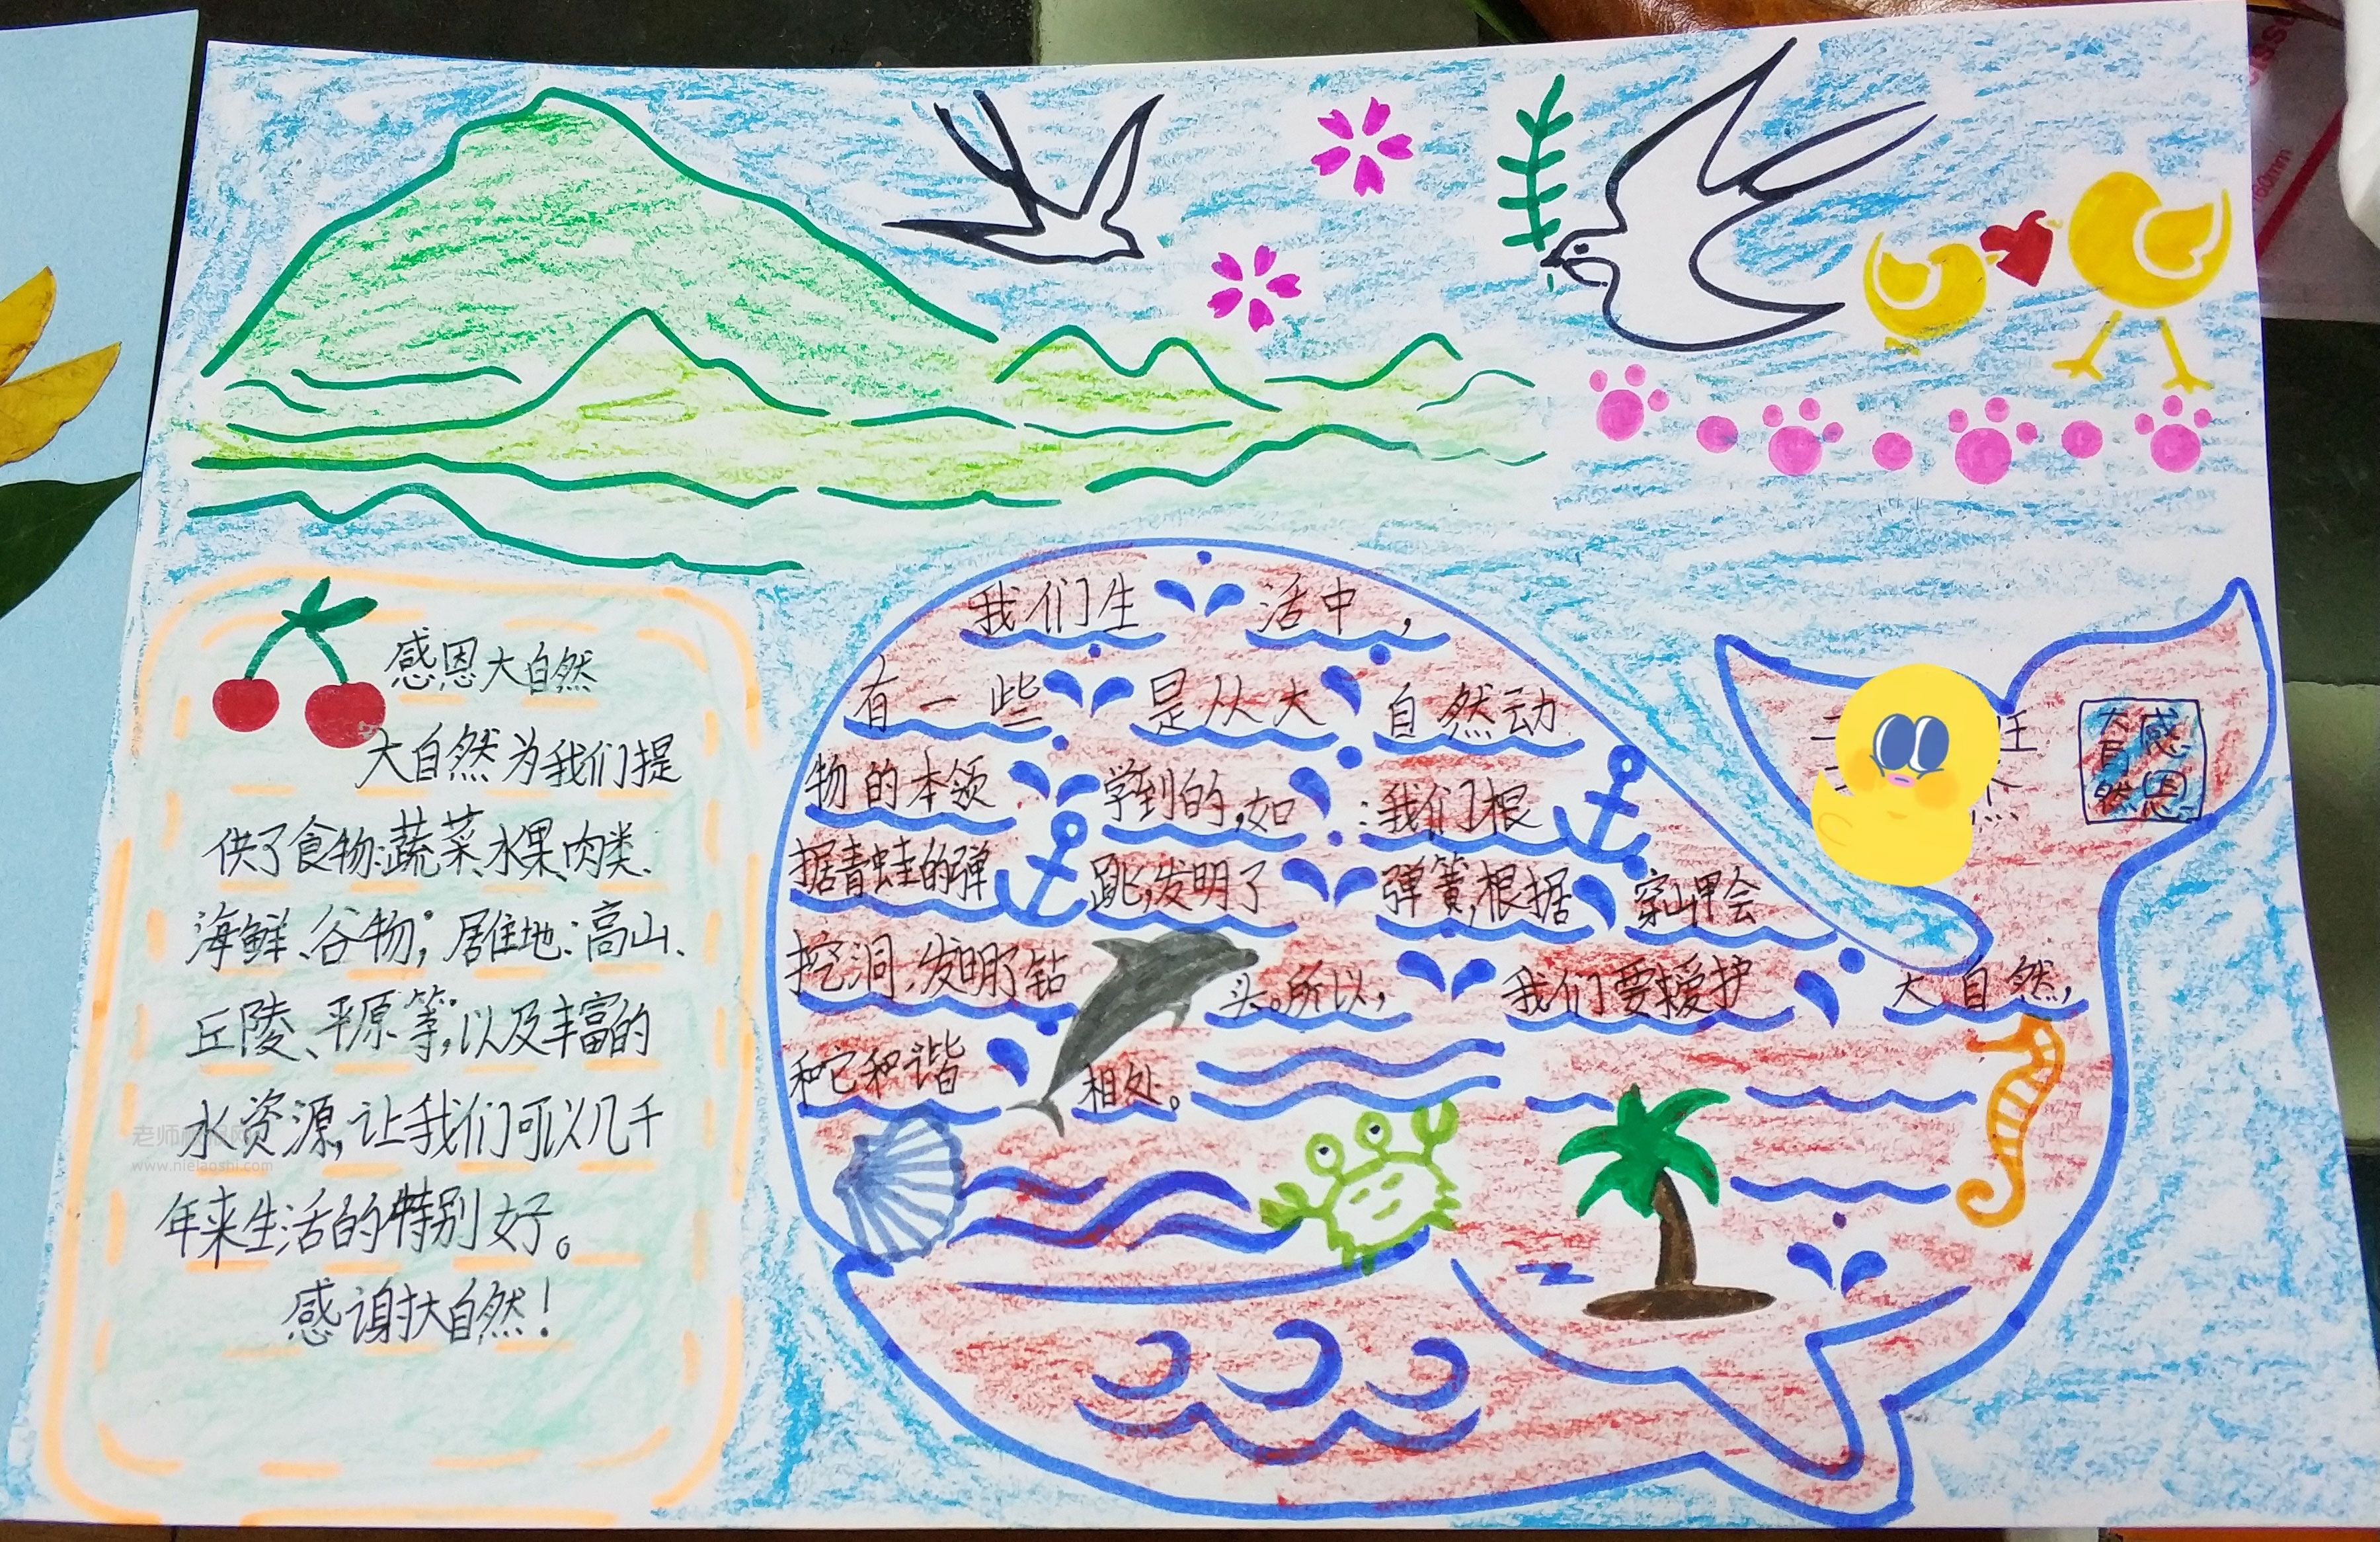 感恩大自然
大自然为我们提
供了食物:蔬菜、水果、肉类、
海鲜、谷物;居住地:高山、
丘陵、平原等;以及丰富的
水资源,让我们可以几千
年来生活的特别好。
感谢大自然!
我们生活中,
有一些是从大自然动
物的本领学到的,如:我们根
据青蛙的弹跳,发明了弹簧,根据穿山甲会
挖洞,发明了钻头。所以,我们要爱护大自然,
和它和谐相处。
感恩
大自然
www.nielaoshi.com
60mm